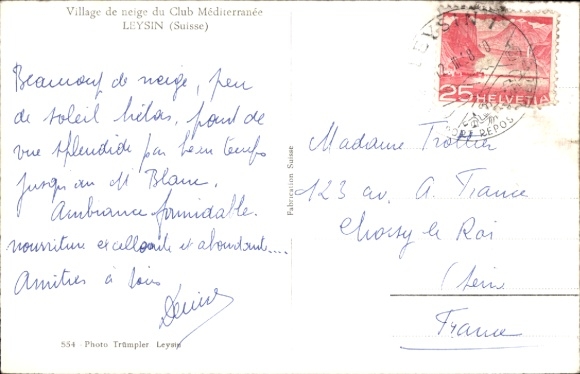 Village de neige du Club Méditerranée
LEYSIN (Suisse)
Beaucoup de neige, peu
de soleil hélas, pourtant
vue splendide par beau temps
jusqu'au Mt Blanc.
Ambiance formidable.
nourriture excellente et abondante....
Amitiés à tous
Denise
554 - Photo Trümpler Leysin
Fabrication Suisse
LEYSIN 1
25 HELVETIA
REPOS
Madame Trottier
123 av. A. France
Choisy le Roi
(Seine
France